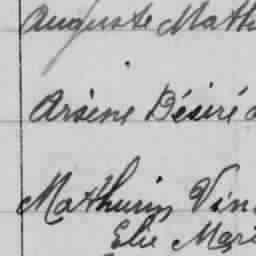 Auguste Math
Arsène Désiré
Mathurin Vin
Elie Mari